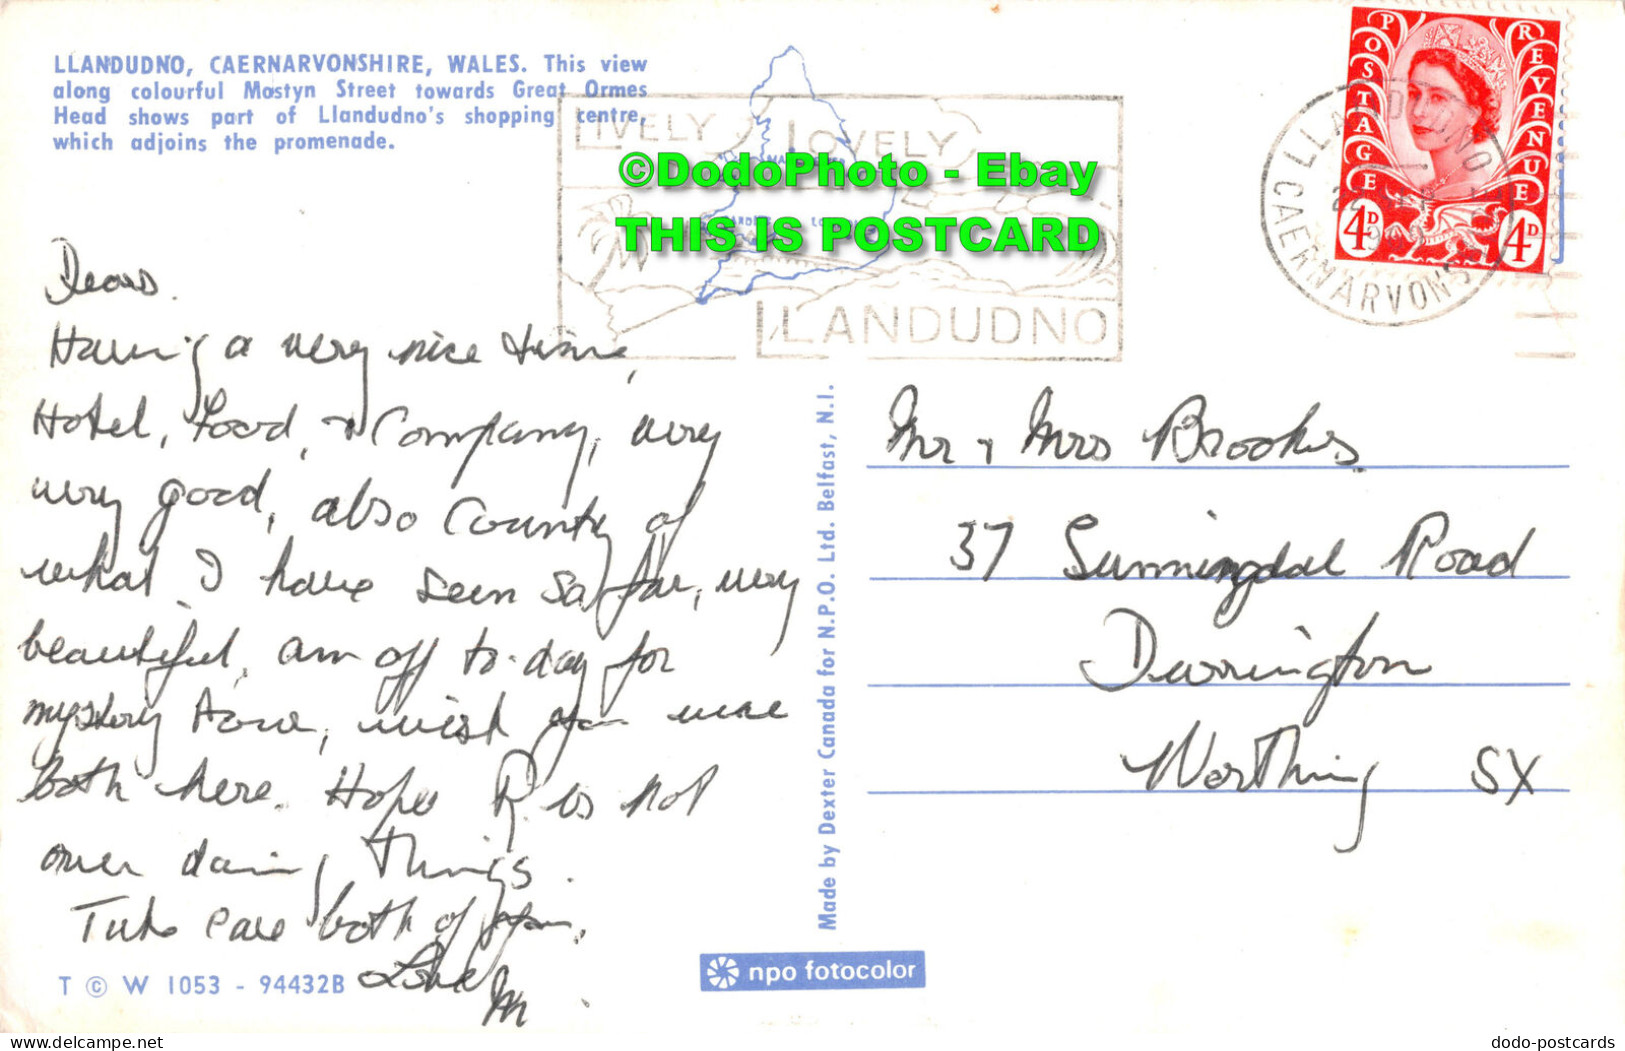 LLANDUDNO, CAERNARVONSHIRE, WALES. This view
along colourful Mostyn Street towards Great Ormes
Head shows part of Llandudno's shopping centre,
which adjoins the promenade.
LIVELY LOVELY
LLANDUDNO
©DodoPhoto - Ebay
THIS IS POSTCARD
LLANDUDNO
CAERNARVONS
POSTAGE REVENUE
4D 4D
Dears.
Having a very nice time,
Hotel, Food, & Company, very
very good, also County of
what I have seen so far, very
beautiful, am off to-day for
mystery tour, wish you were
both here. Hope R. is not
over doing things.
Take care both of you.
Love
M
T © W 1053 - 94432B
Made by Dexter Canada for N.P.O. Ltd. Belfast, N.I.
npo fotocolor
Mr & Mrs Brookes
37 Sunningdal Road
Durrington
Worthing SX
delcampe.net
dodo-postcards